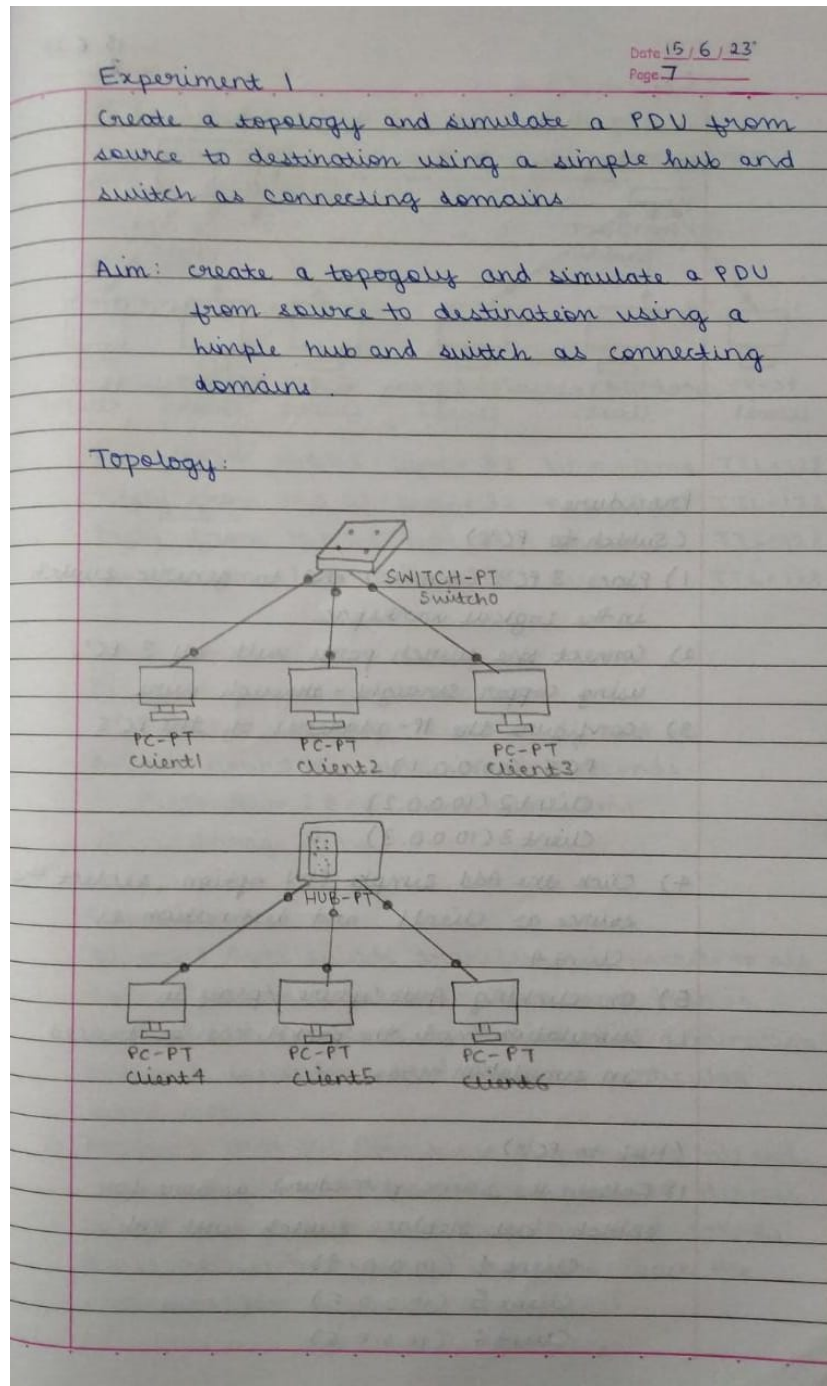 Date 15/6/23
Page 7
Experiment 1
Create a topology and simulate a PDU from
source to destination using a simple hub and
switch as connecting domains
Aim: create a topogoly and simulate a PDU
from source to destination using a
himple hub and switch as connecting
domains.
Topology:
SWITCH-PT
Switch0
PC-PT PC-PT PC-PT
Client1 Client2 Client3
HUB-PT
PC-PT PC-PT PC-PT
Client4 Client5 Client6